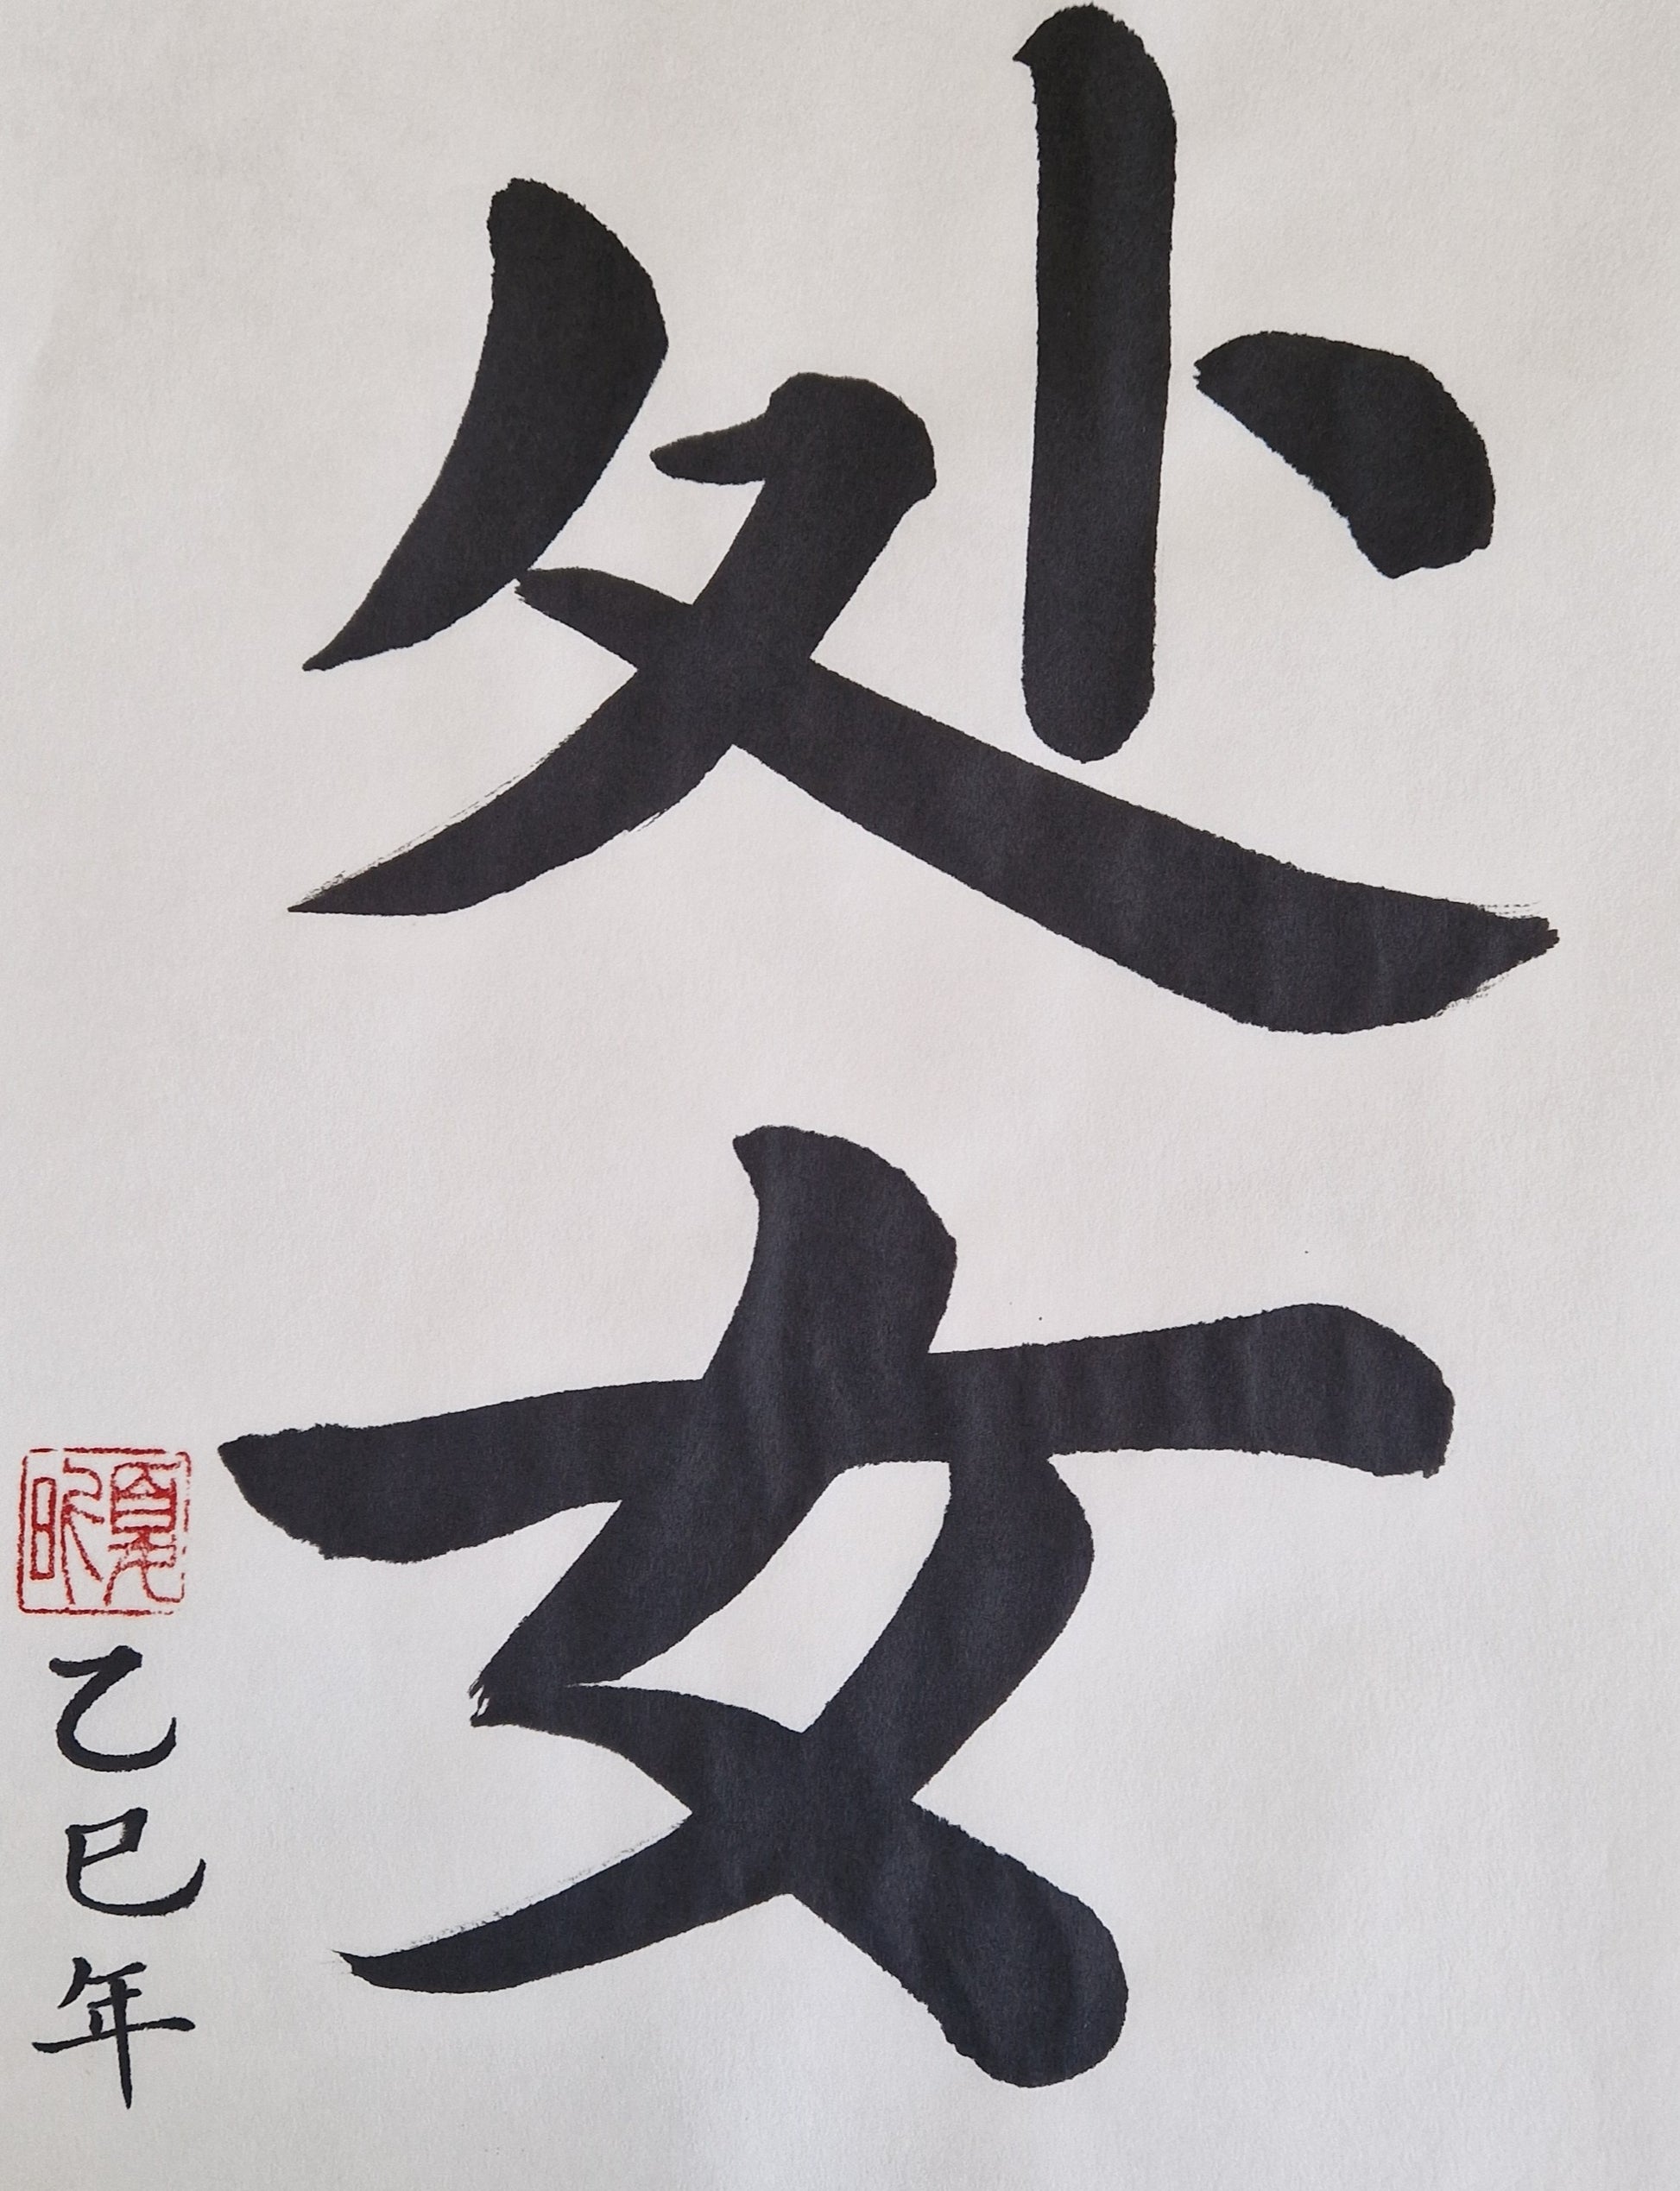 处女
乙巳年